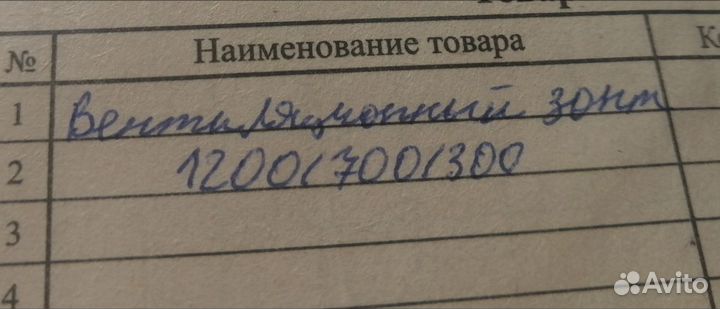 Товар
№ Наименование товара К
1 Вентиляционный зонт
2 1200/700/300
3
4
Avito